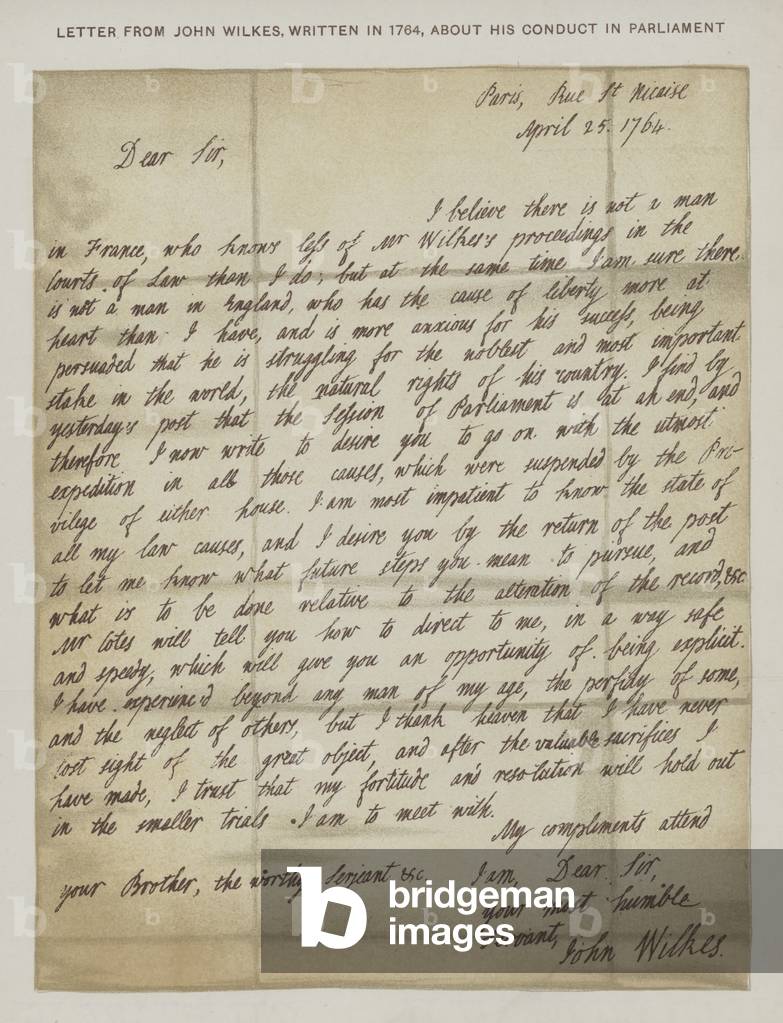 LETTER FROM JOHN WILKES, WRITTEN IN 1764, ABOUT HIS CONDUCT IN PARLIAMENT
Paris, Rue St Nicaise
April 25. 1764.
Dear Sir,
I believe there is not a man
in France, who knows less of Mr Wilkes's proceedings in the
Courts of Law than I do; but at the same time I am sure there
is not a man in England, who has the cause of liberty more at
heart than I have, and is more anxious for his success, being
persuaded that he is struggling for the noblest and most important
stake in the world, the natural rights of his country. I find by
yesterday's post that the Session of Parliament is at an end, and
therefore I now write to desire you to go on with the utmost
expedition in all those causes, which were suspended by the Pri-
vilege of either house. I am most impatient to know the state of
all my law causes, and I desire you by the return of the post
to let me know what future steps you mean to pursue, and
what is to be done relative to the alteration of the record, &c.
Mr Cotes will tell you how to direct to me, in a way safe
and speedy, which will give you an opportunity of being explicit.
I have experienc'd beyond any man of my age, the perfidy of some,
and the neglect of others, but I thank heaven that I have never
lost sight of the great object, and after the valuable sacrifices I
have made, I trust that my fortitude and resolution will hold out
in the smaller trials I am to meet with.
My compliments attend
your Brother, the worthy Serjeant &c. I am, Dear Sir,
your most humble
Servant,
John Wilkes.
b bridgeman
images